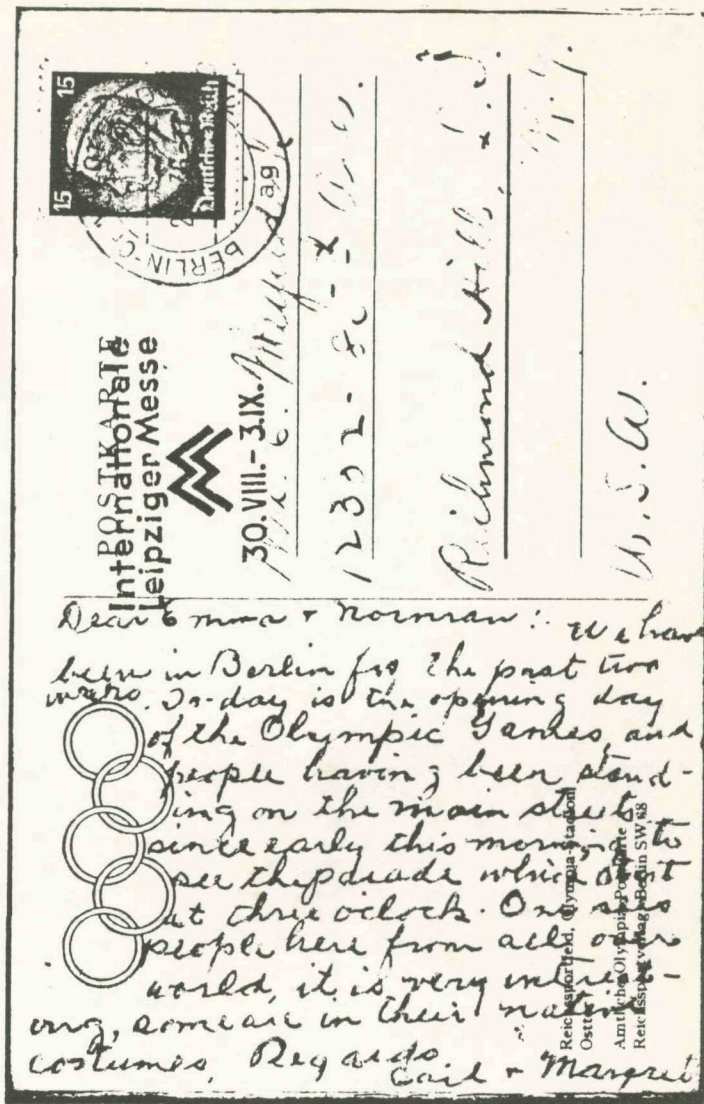 15 15
Deutsches Reich
BERLIN-C
POSTKARTE
Internationale
Leipziger Messe
30.VIII.-3.IX.
12302-
Richmond Hill, L.I.
N.Y.
U.S.A.
Dear Emma + Norman: We have
been in Berlin for the past two
weeks. To-day is the opening day
of the Olympic Games, and
people having been stand-
ing on the main streets
since early this morning to
see the parade which start
at three oclock. One sees
people here from all over
world, it is very interest-
ing, some are in their native
costumes. Regards
Carl + Margret
Reichssportfeld, Olympia-Stadion
Osttor
Amtliche Olympia-Postkarte
Reichssportverlag Berlin SW 68